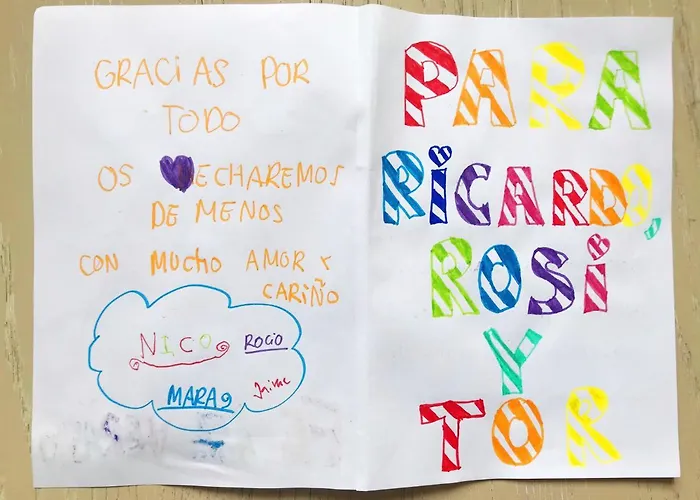 GRACIAS POR
TODO
OS ECHAREMOS
DE MENOS
CON MUCHO AMOR Y
CARIÑO
NICO
ROCIO
MARA
Jaime
PARA
RICARDO,
ROSI
Y
TOR